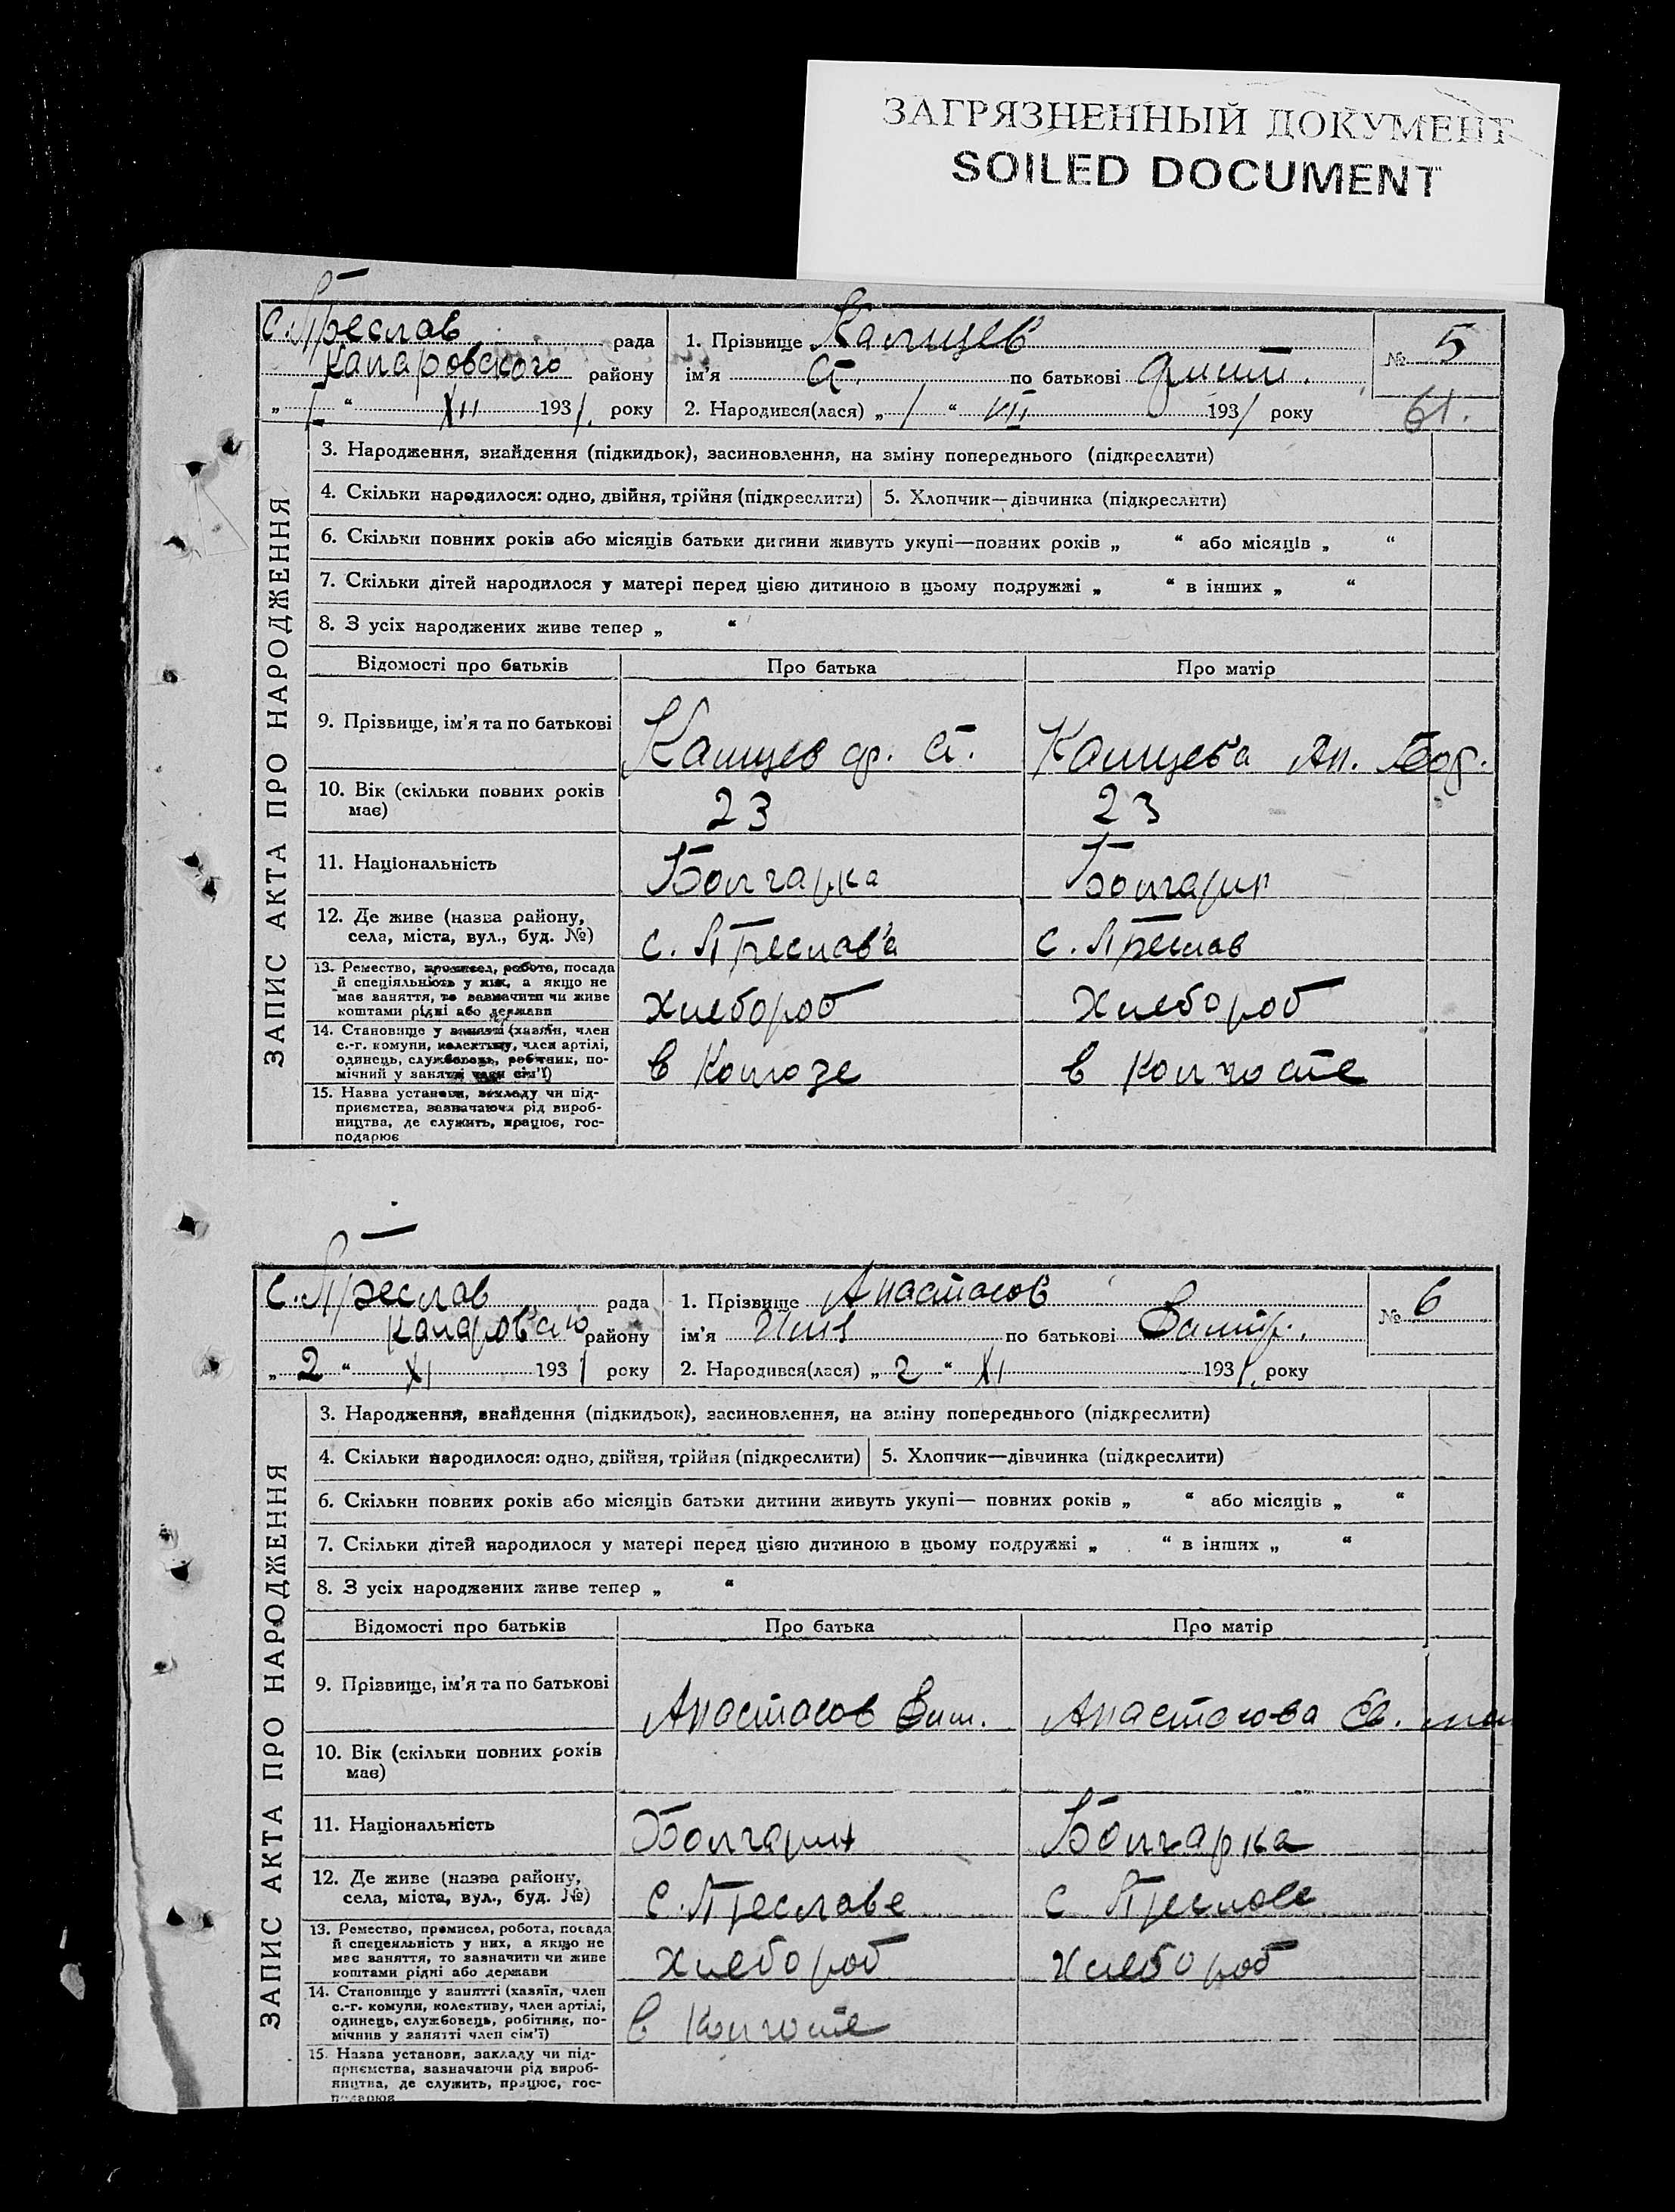 ЗАГРЯЗНЕННЫЙ ДОКУМЕНТ
SOILED DOCUMENT
с. Преслав рада
района району
„ 1 “ XII 1931. року
1. Прізвище
ім'я по батькові
2. Народився(лася) „ 1 “ VII 1931 року
№ 5
61.
ЗАПИС АКТА ПРО НАРОДЖЕННЯ
3. Народження, знайдення (підкидьок), засиновлення, на зміну попереднього (підкреслити)
4. Скільки народилося: одно, двійня, трійня (підкреслити) 5. Хлопчик—дівчинка (підкреслити)
6. Скільки повних років або місяців батьки дитини живуть укупі—повних років „ “ або місяців „ “
7. Скільки дітей народилося у матері перед цією дитиною в цьому подружжі „ “ в інших „ “
8. З усіх народжених живе тепер „ “
Відомості про батьків Про батька Про матір
9. Прізвище, ім'я та по батькові
10. Вік (скільки повних років
має)
23 23
11. Національність Болгарка Болгарин
12. Де живе (назва району,
села, міста, вул., буд. №)
с. Преслав'а с. Преслав
13. Ремество, промисел, робота, посада
й спеціяльність у них, а якщо не
має заняття, то зазначити чи живе
коштами рідні або держави
Хлебороб Хлебороб
14. Становище у занятті (хазяїн, член
с.-г. комуни, колективу, член артілі,
одинець, службовець, робітник, по-
мічний у занятті член сім'ї)
в в
15. Назва установи, закладу чи під-
приємства, зазначаючи рід вироб-
ництва, де служить, працює, гос-
подарює
с. Преслав рада
району
„ 2 “ XI 1931 року
1. Прізвище Анастасов
ім'я по батькові
2. Народився(лася) „ 2 “ XI 1931. року
№ 6
ЗАПИС АКТА ПРО НАРОДЖЕННЯ
3. Народження, знайдення (підкидьок), засиновлення, на зміну попереднього (підкреслити)
4. Скільки народилося: одно, двійня, трійня (підкреслити) 5. Хлопчик—дівчинка (підкреслити)
6. Скільки повних років або місяців батьки дитини живуть укупі— повних років „ “ або місяців „ “
7. Скільки дітей народилося у матері перед цією дитиною в цьому подружжі „ “ в інших „ “
8. З усіх народжених живе тепер „ “
Відомості про батьків Про батька Про матір
9. Прізвище, ім'я та по батькові Анастасов Анастасова
10. Вік (скільки повних років
має)
11. Національність Болгарин Болгарка
12. Де живе (назва району,
села, міста, вул., буд. №)
с. Преславе с Преславе
13. Ремество, промисел, робота, посада
й спецеяльність у них, а якщо не
має заняття, то зазначити чи живе
коштами рідні або держави
Хлебороб Хлебороб
14. Становище у занятті (хазяїн, член
с.-г. комуни, колективу, член артілі,
одинець, службовець, робітник, по-
мічнив у занятті член сім'ї)
в
15. Назва установи, закладу чи під-
приємства, зазначаючи рід вироб-
ництва, де служить, працює, гос-
подарює